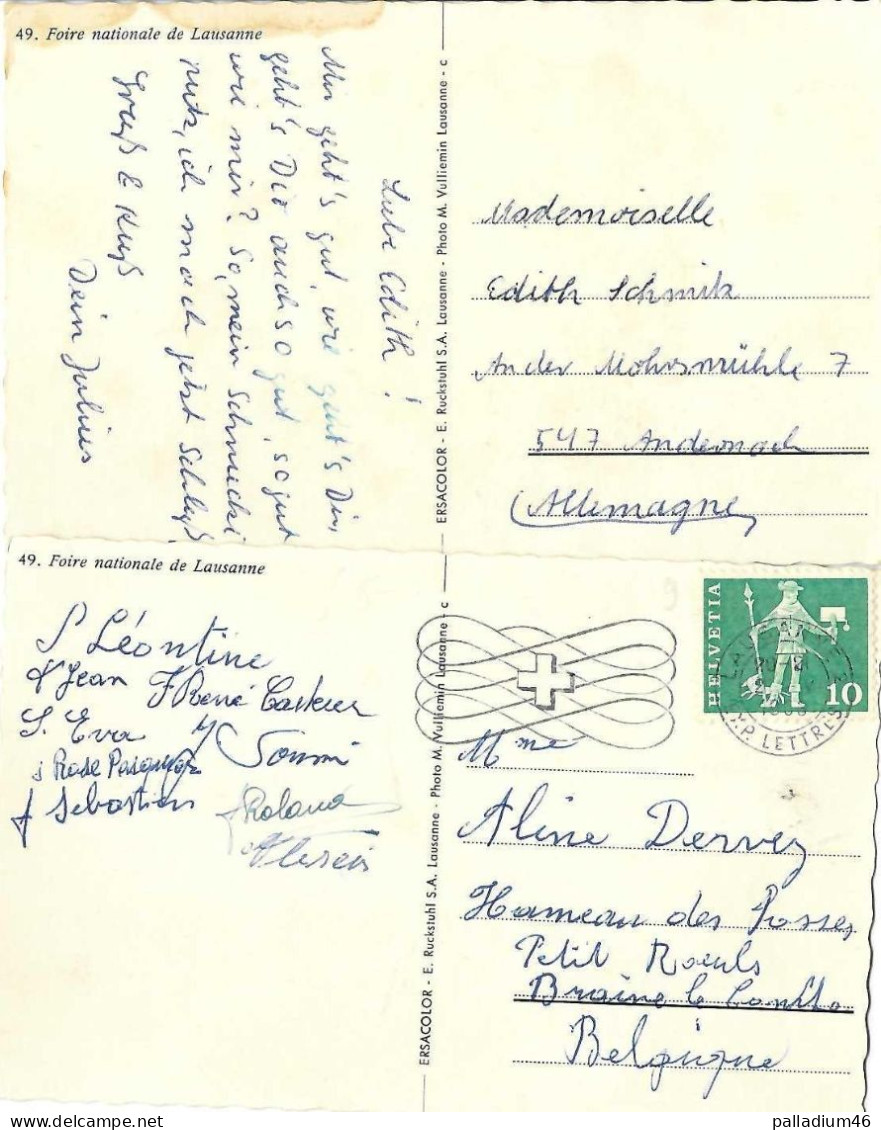 49. Foire nationale de Lausanne
Liebe Edith!
Mir geht's gut, wie geht's Dir,
geht's Dir auch so gut, so gut
wie mir? So, mein Schnucki
putz, ich mach jetzt Schluß
Gruß & Kuß
Dein Julius
ERSACOLOR - E. Ruckstuhl S.A. Lausanne - Photo M. Vulliemin Lausanne - c
Mademoiselle
Edith Schmitz
An der Mohrsmühle 7
547 Andernach
(Allemagne)
49. Foire nationale de Lausanne
S Léontine
Jean F René
S. Eva Sonni
s Rose
f Sebastien f Roland
ERSACOLOR - E. Ruckstuhl S.A. Lausanne - Photo M. Vulliemin Lausanne - c
HELVETIA
10
LAUSANNE
EXP. LETTRES
Mme
Aline Dervez
Hameau des Fosses
Petit Roeulx
Braine le Comte
Belgique
palladium46